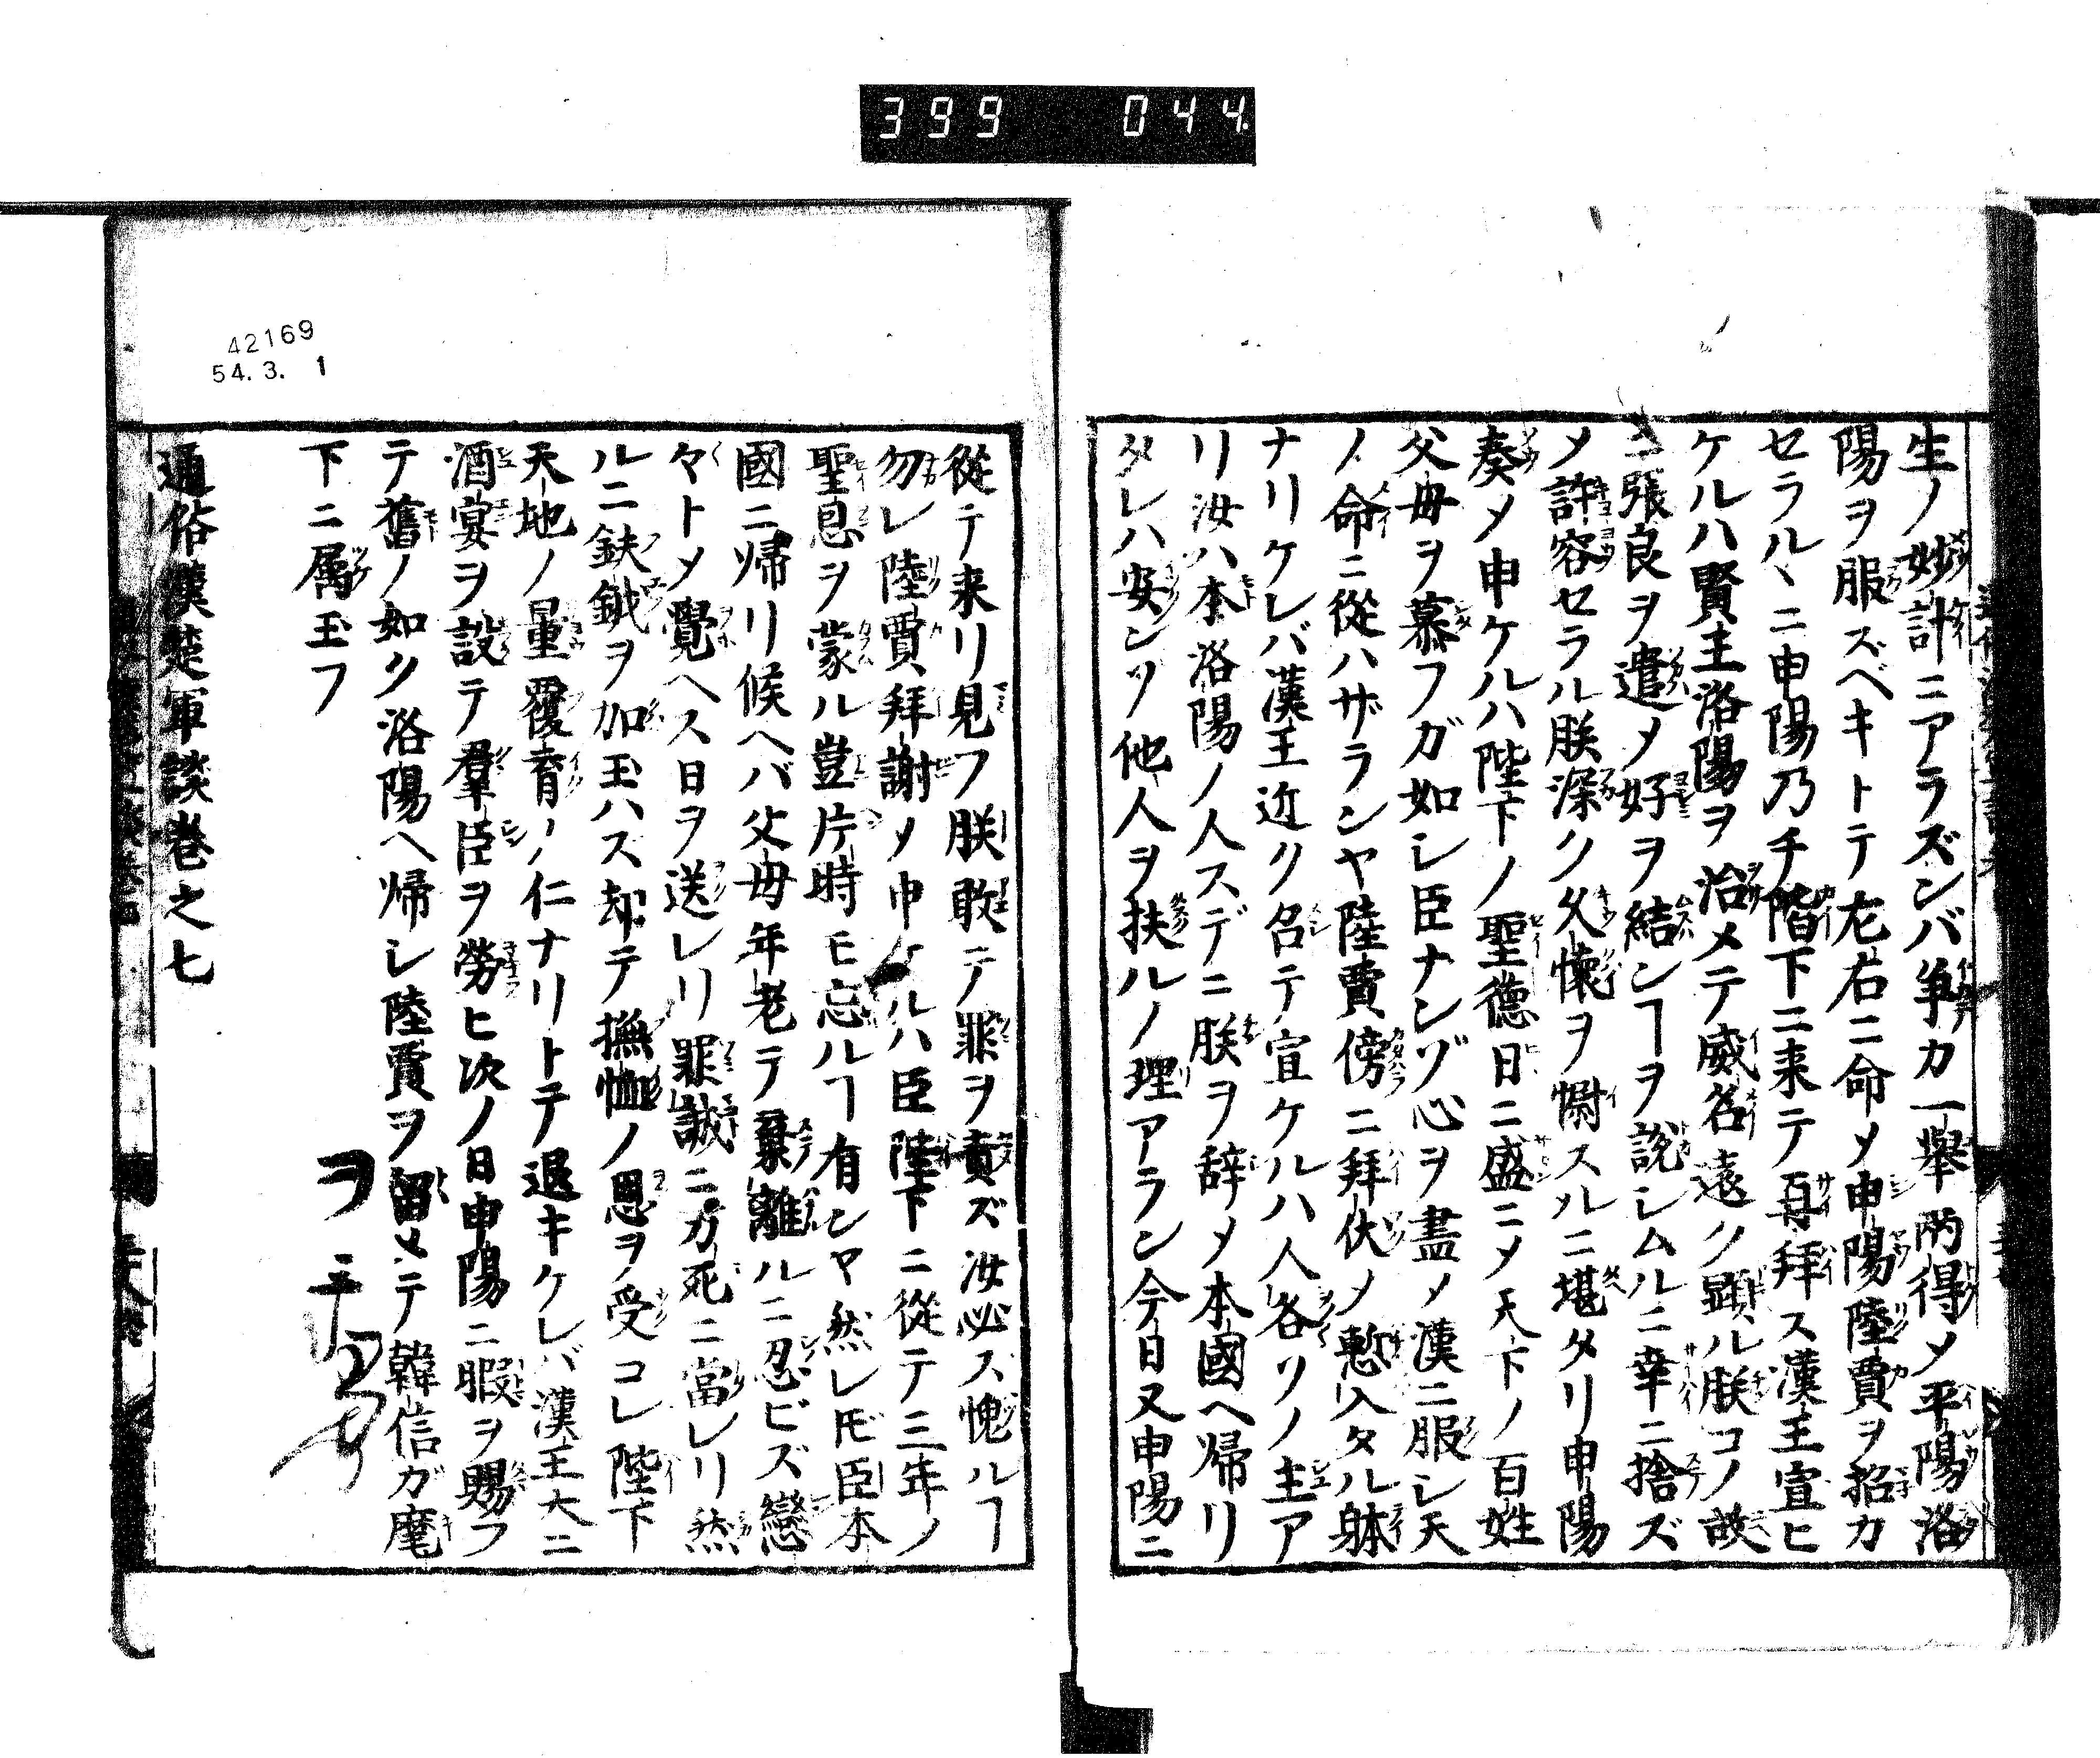 399 044
生ノ妙計ニアラズンバ争カ一擧両得メ平陽洛
陽ヲ服ズベキトテ左右ニ命メ申陽陸賈ヲ招カ
セラルヽニ申陽乃チ階下ニ来テ再拜ス漢王宣ヒ
ケルハ賢王洛陽ヲ治メテ威名遠ク顕ル朕コノ故
ニ張良ヲ遣メ好ヲ結ンヿヲ説シムルニ幸ニ捨ズ
メ許容セラル朕深ク久懐ヲ慰スルニ堪タリ申陽
奏メ申ケルハ陛下ノ聖德日ニ盛ニメ天下ノ百姓
父毋ヲ慕フガ如シ臣ナンゾ心ヲ盡メ漢ニ服シ天
ノ命ニ從ハザランヤ陸賈傍ニ拜伏メ慙入タル躰
ナリケレバ漢王近ク名テ宣ケルハ人各ソノ主ア
リ汝ハ本洛陽ノ人スデニ朕ヲ辞メ本國ヘ帰リ
タレハ安ンソ他人ヲ扶ルノ理アラン今日又申陽ニ
從テ来リ見フ朕敢テ罪ヲ責ズ汝必ス愧ルヿ
勿レ陸賈拜謝メ申ケルハ臣陛下ニ從テ三年ノ
聖息ヲ蒙ル豈片時モ忘ルヿ有ンヤ然レ𪜈臣本
國ニ帰リ候ヘバ父毋年老テ棄離ルニ忍ビズ戀
々トメ覺ヘス日ヲ送レリ罪誠ニ万死ニ當レリ然
ルニ鈇鉞ヲ加玉ハス却テ撫恤ノ恩ヲ受コレ陛下
天地ノ量覆育ノ仁ナリトテ退キケレバ漢王大ニ
酒宴ヲ設テ羣臣ヲ勞ヒ次ノ日申陽ニ暇ヲ賜フ
テ舊ノ如ク洛陽ヘ帰シ陸賈ヲ留メテ韓信ガ麾
下ニ属玉フ
通俗漢楚軍談巻之七
42169
54.3. 1